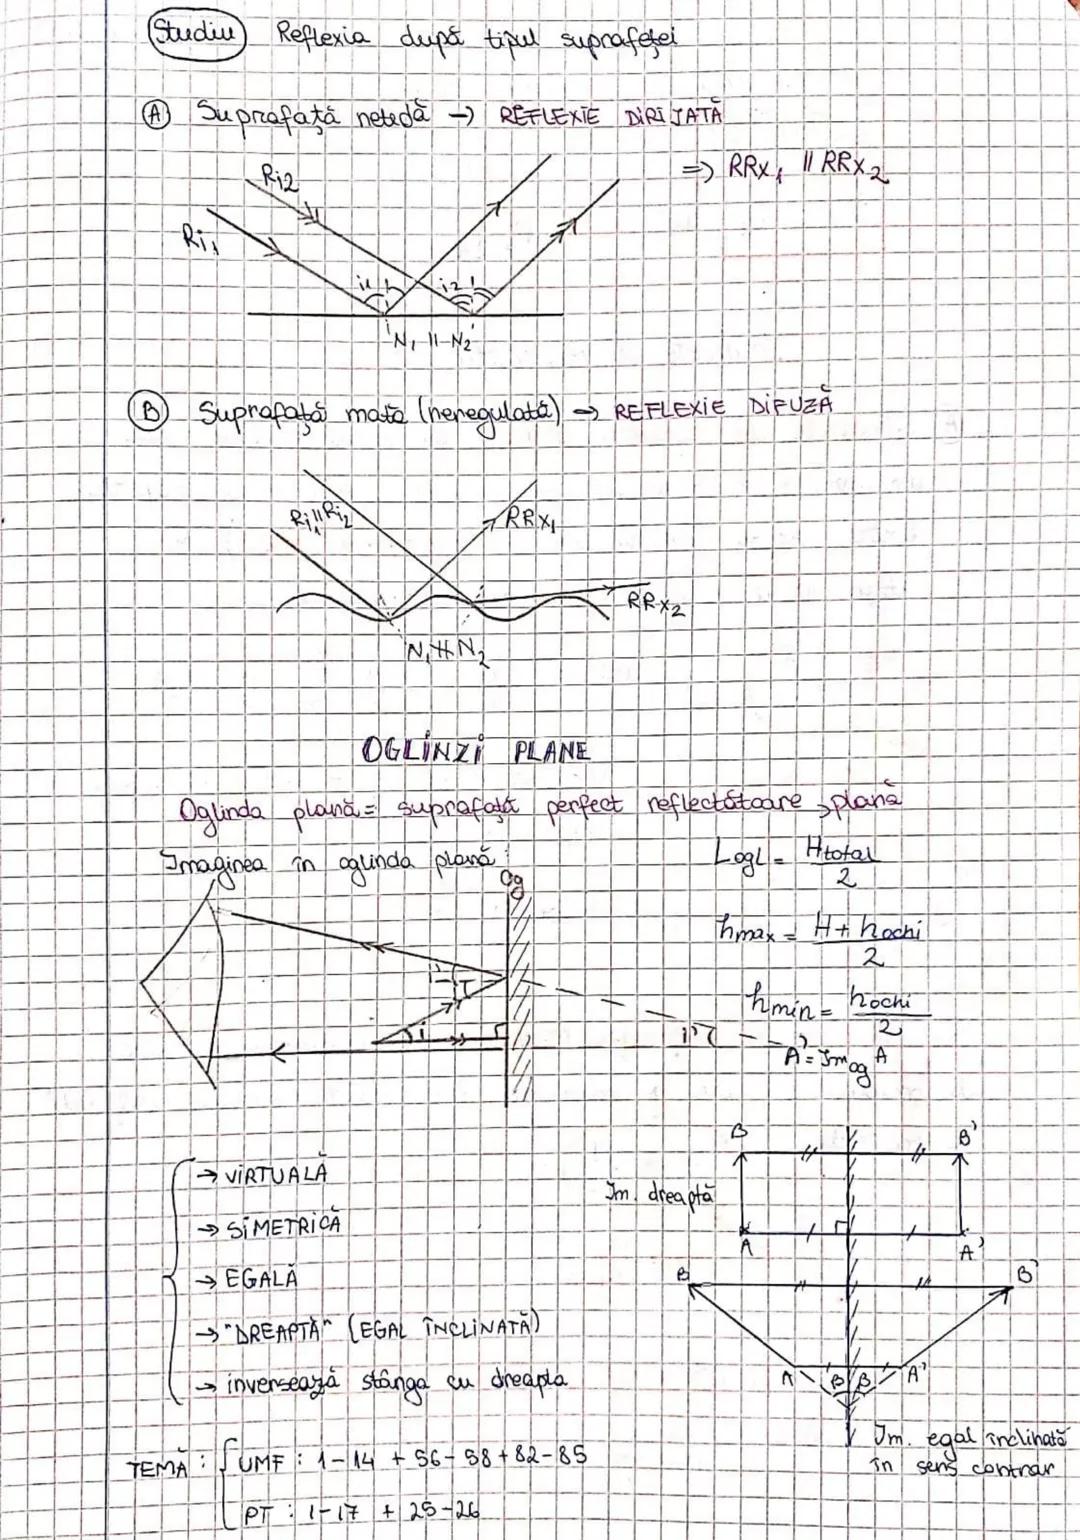 Studiu Reflexia după tipul suprafeței
A Suprafață netedă → REFLEXIE DIRIJATĂ
⇒ RRx1 || RRx2
Ri2
Ri1
i1 i2
N1 || N2
B Suprafață mată (neregulată) → REFLEXIE DIFUZĂ
Ri1 || Ri2
RRx1
RRx2
N1 ∦ N2
OGLINZI PLANE
Oglinda plană = suprafață perfect reflectătoare, plană
Imaginea în oglinda plană:
Og
Logl = Htotal / 2
hmax = H + hochi / 2
hmin = hochi / 2
i
A' = Imog A
→ VIRTUALĂ
→ SIMETRICĂ
→ EGALĂ
→ "DREAPTĂ" (EGAL ÎNCLINATĂ)
→ inversează stânga cu dreapta
B B'
Im. dreaptă
A A'
B B'
A β β A'
Im. egal înclinată
în sens contrar
TEMĂ : UMF : 1-14 + 56-58 + 82-85
PT : 1-17 + 25-26